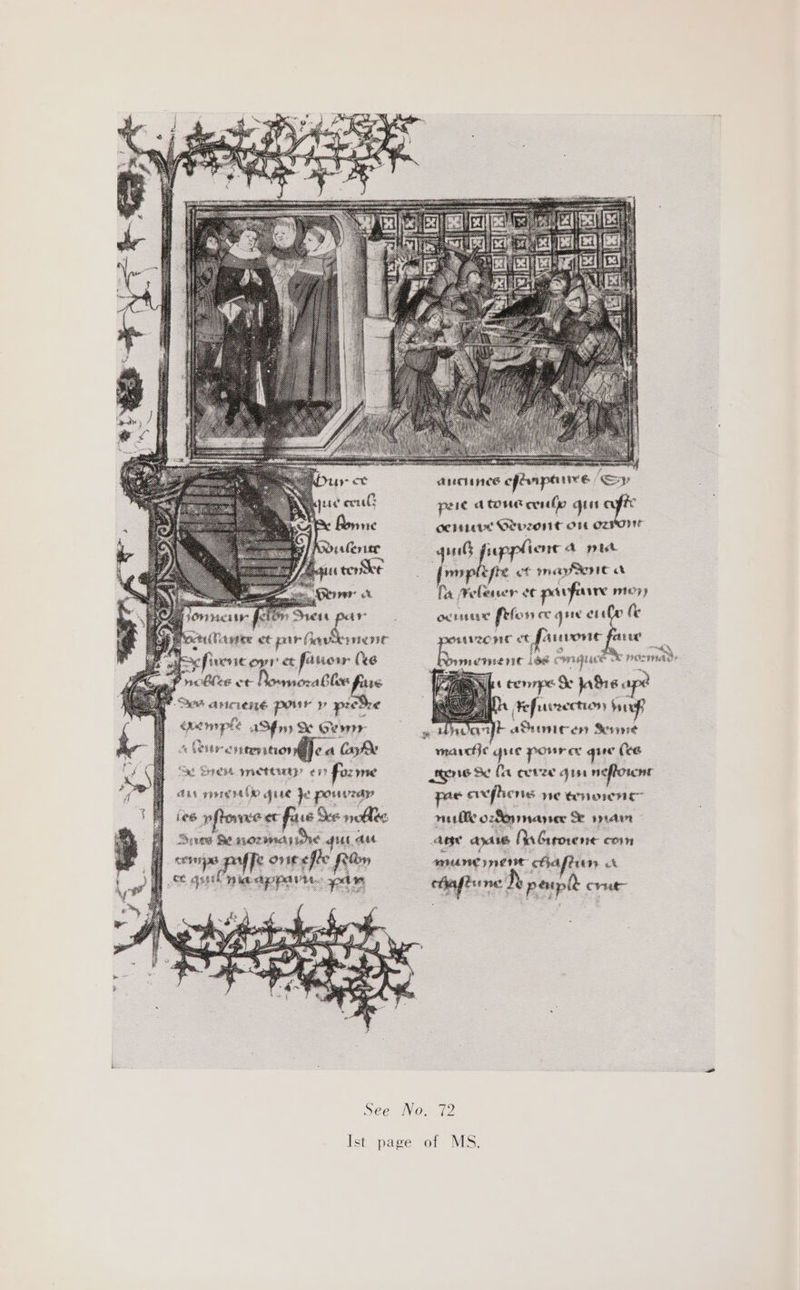 Pour ce
que ceulz
de bonne
voulente
qui tendent
venir a
honneur selon dieu par
vaillance et par hardement
desirent oyr et sauoir les
nobles et honnorables fais
des anciens pour y predre
exemple adfin de venir
a leur entention Je a layde
de dieu mettray en forme
au mieulx que Je pourray
les ystoires et fais des nobles
Ducs de normandie qui au
temps passe ont este selon
ce quil ma apparu par
aucunes escriptures Sy
prie a tous ceulx qui ceste
oeuure verront ou orront
quilz supplient a ma
simplesse et maydent a
la releuer et parfaire mon
oeuure selon ce que eulx le
pourront et sauront faire
le temps de jadis
la resurrection
aduint en
marche que pour ce que les
gens de la terre qui nestoient
pas crestiens ne tenoient
nulle ordonnance de mari
age ayans habitoient com
munement chascun a
chascune le peuple crut
See No. 72
1st page of MS.